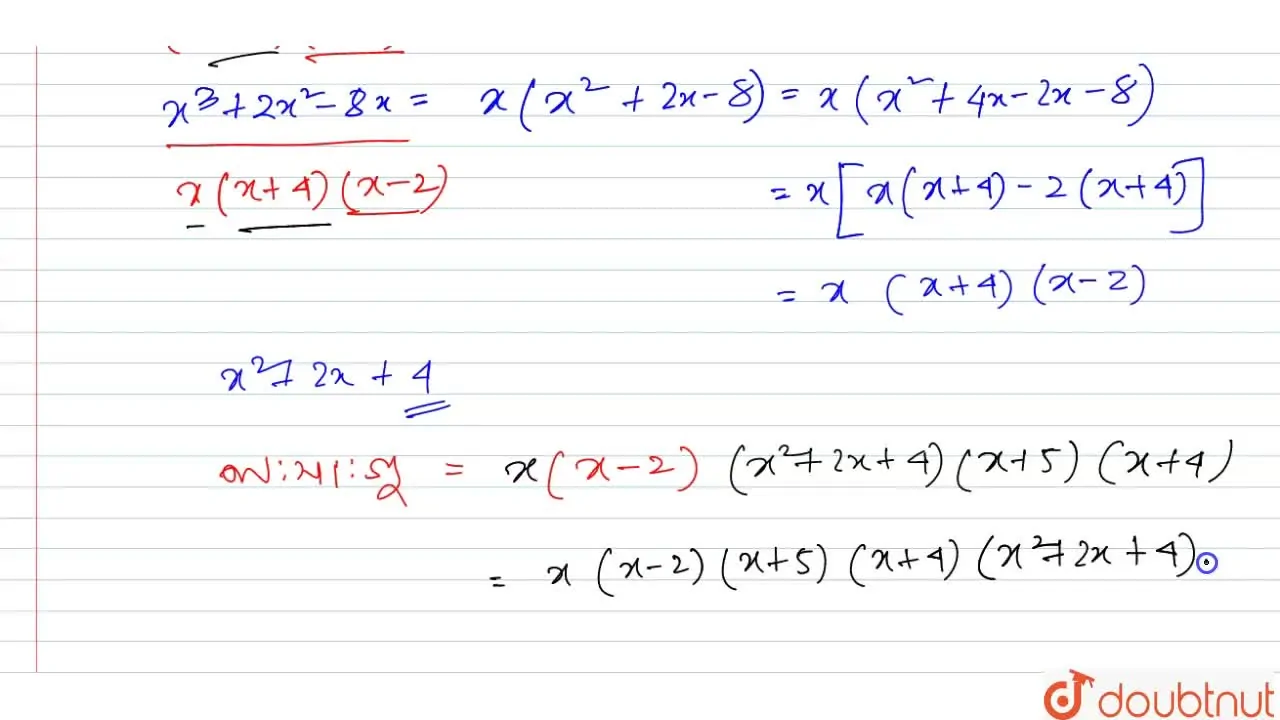 x³+2x²-8x = x(x²+2x-8) = x(x²+4x-2x-8)
x(x+4)(x-2)
= x[x(x+4)-2(x+4)]
= x (x+4)(x-2)
x²+2x+4
= x(x-2)(x²+2x+4)(x+5)(x+4)
= x(x-2)(x+5)(x+4)(x²+2x+4)
doubtnut